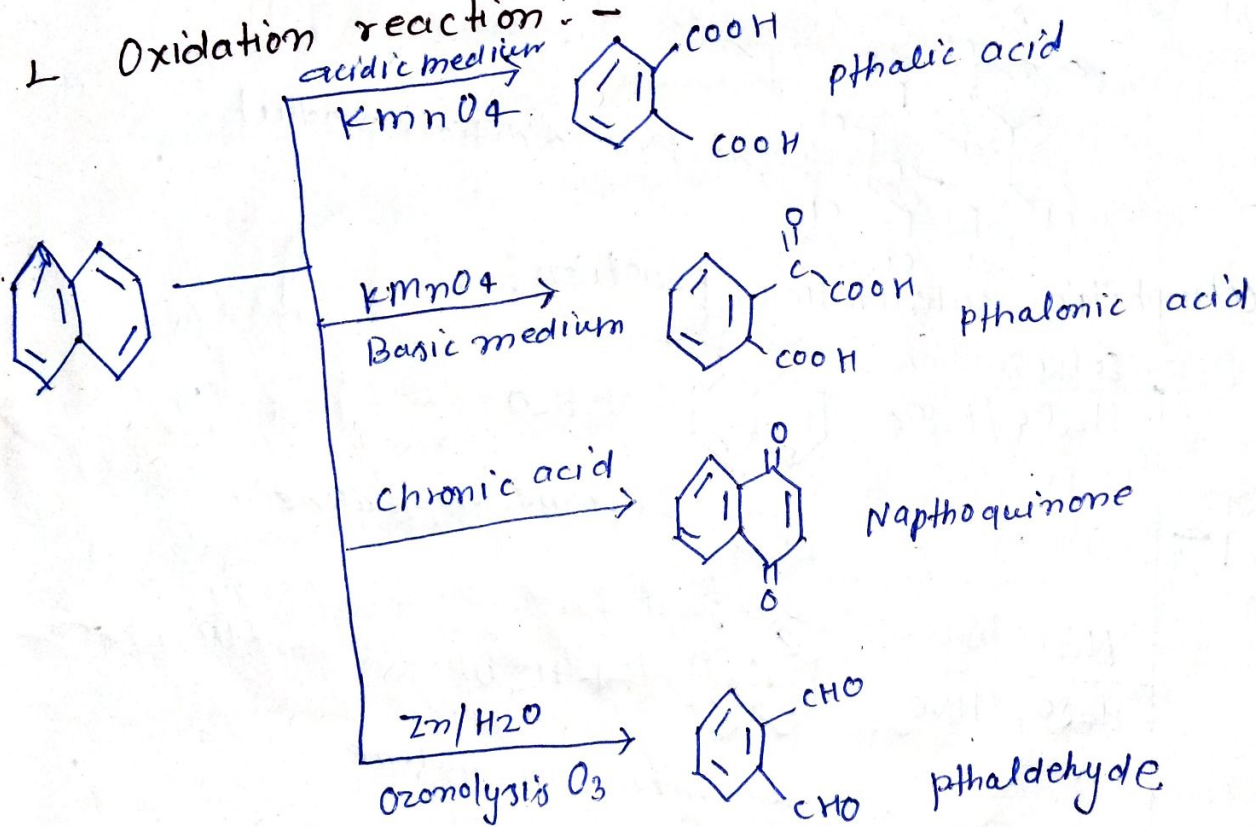 1 Oxidation reaction. -
acidic medium
KmnO4.
COOH
COOH
pthalic acid.
KMnO4
Basic medium
O
C
COOH
COOH
pthalonic acid
Chromic acid
O
O
Napthoquinone
Zn/H2O
Ozonolysis O3
CHO
CHO
pthaldehyde